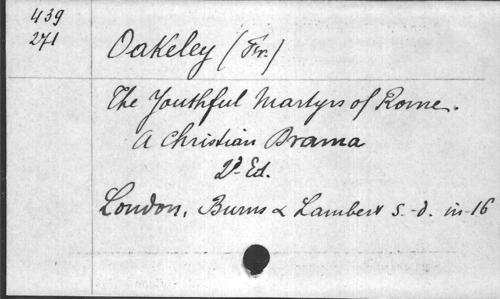 439
271
Oakeley (Fr.)
The Youthful Martyrs of Rome.
A Christian Drama
2d Ed.
London, Burns & Lambert s.-d. in-16